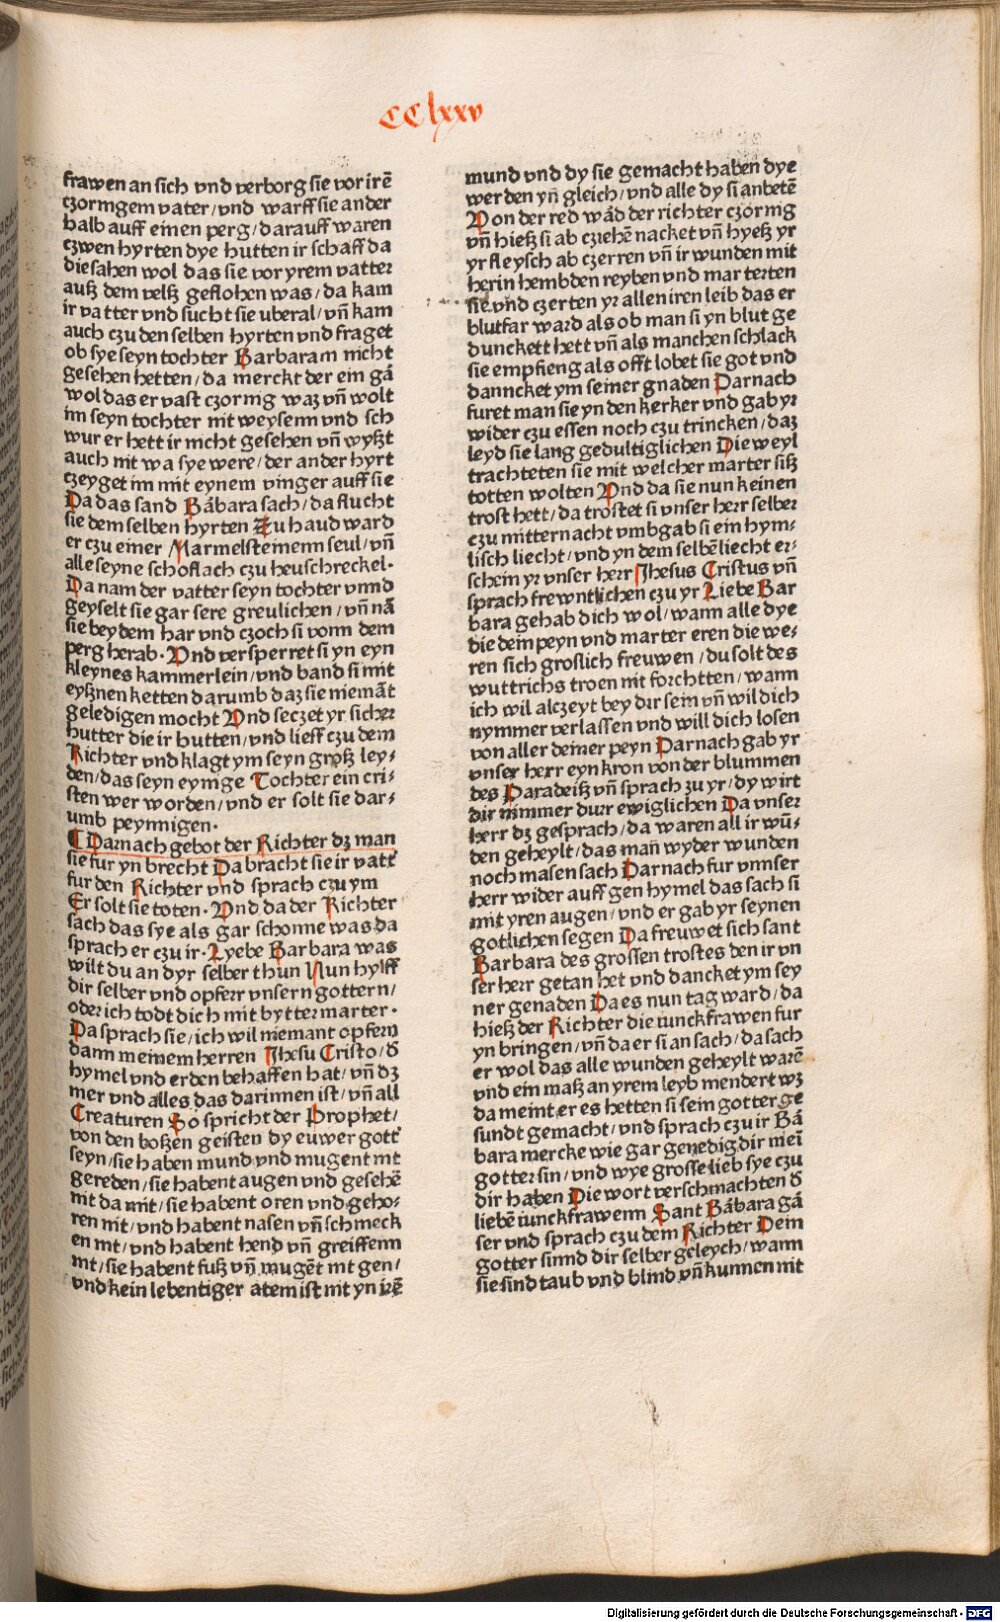 CClxxv
frawen an sich vnd verborg sie vor irē
czornigem vater/vnd warff sie ander
halb auff einen perg/darauff waren
czwen hyrten dye hutten ir schaff da
die sahen wol das sie vor yrem vatter
auß dem velß geflohen was/da kam
ir vatter vnd sucht sie uberal/vñ kam
auch czu den selben hyrten vnd fraget
ob sye seyn tochter Barbaram nicht
gesehen hetten/da merckt der ein gā
wol das er vast czornig waz vñ wolt
im seyn tochter nit weysenn vnd sch
wur er hett ir nicht gesehen vñ wyßt
auch nit wa sye were/der ander hyrt
czeyget im mit eynem vinger auff sie
Da das sand Bābara sach/da flucht
sie dem selben hyrten Zu hand ward
er czu einer Marmelsteinenn seul/vñ
alle seyne schoflach czu heuschreckel.
Da nam der vatter seyn tochter vnnd
geyselt sie gar sere greulichen/vñ nā
sie bey dem har vnd czoch si vonn dem
perg herab. Vnd versperret si yn eyn
kleynes kammerlein/vnd band si mit
eyßnen ketten darumb daz sie niemāt
geledigen mocht Vnd seczet yr sicher
hutter die ir hutten/vnd lieff czu dem
Richter vnd klagt ym seyn groß ley-
den/das seyn eynige Tochter ein cri-
sten wer worden/vnd er solt sie dar-
umb peynnigen.
¶ Darnach gebot der Richter dz man
sie fur yn brecht Da bracht sie ir vatt̄
fur den Richter vnd sprach czu ym
Er solt sie toten. Vnd da der Richter
sach das sye als gar schonne was da
sprach er czu ir. Lyebe Barbara was
wilt du an dyr selber thun Nun hylff
dir selber vnd opferr vnsern gottern/
oder ich todt dich mit bytter marter.
Da sprach sie/ich wil niemant opfern
dann meinem herren Jhesu Cristo/d̄
hymel vnd erden behaffen hat/vñ dz
mer vnd alles das darinnen ist/vñ all
Creaturen So spricht der Prophet/
von den boßen geisten dy euwer gott̄
seyn/sie haben mund vnd mugent nit
gereden/sie habent augen vnd gesehē
nit da mit/sie habent oren vnd geho-
ren nit/vnd habent nasen vñ schmeck
en nit/vnd habent hend vñ greiffenn
nit/sie habent fuß vñ mugēt nit gen/
vnd kein lebentiger atem ist nit yn irē
mund vnd dy sie gemacht haben dye
werden yñ gleich/vnd alle dy si anbetē
Von der red wād der richter czornig
vñ hieß si ab cziehē nacket vñ hyeß yr
yr fleysch ab czerren vñ ir wunden mit
herin hembden reyben vnd marterten
sie vnd czerten yr allen iren leib das er
blutfar ward als ob man si yn blut ge
dunckett hett vñ als manchen schlack
sie empfieng als offt lobet sie got vnd
danncket ym seiner gnaden Darnach
furet man sie yn den kerker vnd gab yr
wider czu essen noch czu trincken/daz
leyd sie lang gedultiglichen Die weyl
trachteten sie mit welcher marter siß
totten wolten Vnd da sie nun keinen
trost hett/da trostet si vnser herr selber
czu mitternacht vmbgab si ein hym-
lisch liecht/vnd yn dem selbē liecht er-
schein yr vnser herr Jhesus Cristus vñ
sprach frewntlichen czu yr Liebe Bar
bara gehab dich wol/wann alle dye
die dein peyn vnd marter eren die we-
ren sich groslich freuwen/du solt des
wuttrichs troen nit forchtten/wann
ich wil alczeyt bey dir sein vñ wil dich
nymmer verlassen vnd will dich losen
von aller deiner peyn Darnach gab yr
vnser herr eyn kron von der blummen
des Paradeiß vñ sprach zu yr/dy wirt
dir nimmer durr ewiglichen Da vnser
herr dz gesprach/da waren all ir wū-
den geheylt/das mañ wyder wunden
noch masen sach Darnach fur vnnser
herr wider auff gen hymel das sach si
mit yren augen/vnd er gab yr seynen
gotlichen segen Da freuwet sich sant
Barbara des grossen trostes den ir vn
ser herr getan het vnd dancket ym sey
ner genaden Da es nun tag ward/da
hieß der Richter die iunckfrawen fur
yn bringen/vñ da er si an sach/da sach
er wol das alle wunden geheylt warē
vnd ein maß an yrem leyb nendert wz
da meint er es hetten si sein gotter ge
sundt gemacht/vnd sprach czu ir Bā
bara mercke wie gar genedig dir mei
gotter sin/vnd wye grosse lieb sye czu
dir haben Die wort verschmachten d̄
liebē iunckfrawenn Sant Bābara gā
ser vnd sprach czu dem Richter Dein
gotter sinnd dir selber geleych/wann
sie sind taub vnd blind vñ kunnen nit
Digitalisierung gefördert durch die Deutsche Forschungsgemeinschaft - DFG